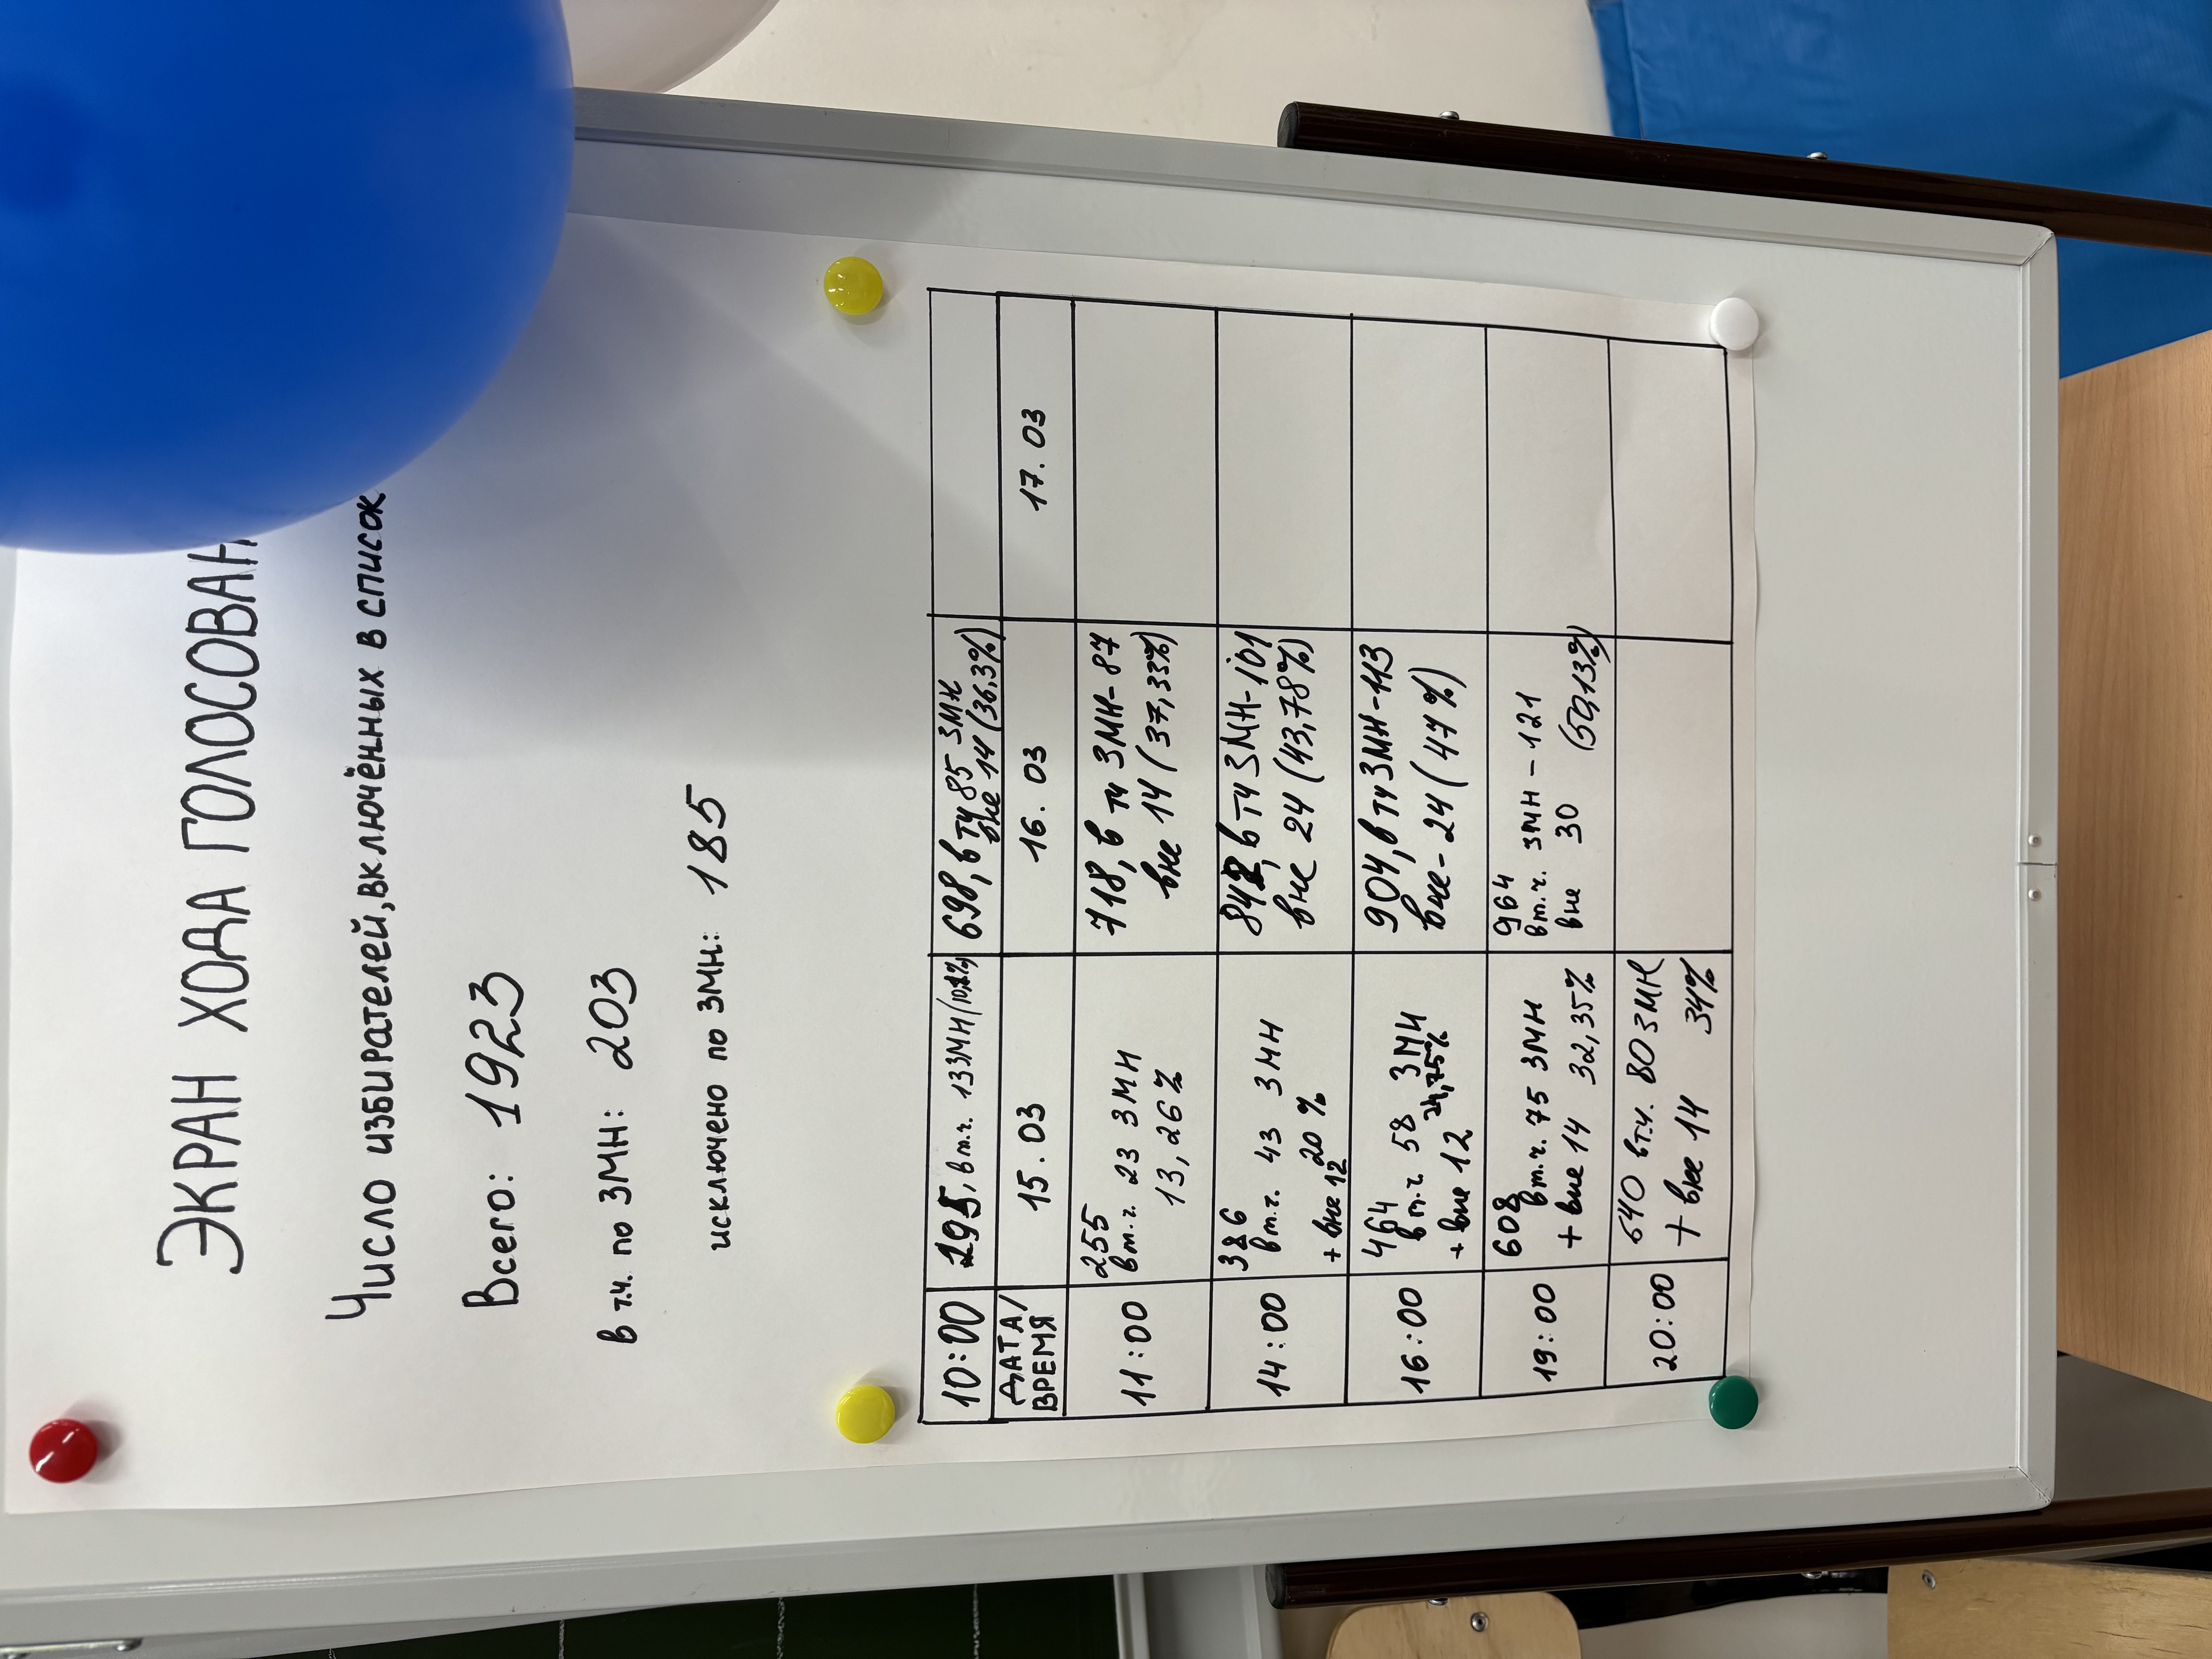 ЭКРАН ХОДА ГОЛОСОВАН
Число избирателей, включённых в список
Всего: 1923
в т.ч. по ЗМН: 203
исключено по ЗМН: 185
10:00
в т.ч. 13 ЗМН
698, в тч 85 ЗМН
вне 14 (36,3%)
ДАТА/
ВРЕМЯ
15.03
16.03
17.03
11:00
255
в т.ч. 23 ЗМН
13,26%
718, в тч ЗМН-87
вне 14 (37,33%)
14:00
386
в т.ч. 43 ЗМН
+ вне 12 20 %
842, в тч ЗМН-101
вне 24 (43,78%)
16:00
464
в т.ч 58 ЗМН
+ вне 12 24,75%
904, в тч ЗМН-113
вне-24 (47%)
19:00
608
в т.ч. 75 ЗМН
+ вне 14 32,35%
964
в т.ч. ЗМН - 121
вне 30 (50,13%)
20:00
640 в т.ч. 80 ЗМН
+ вне 14 34%